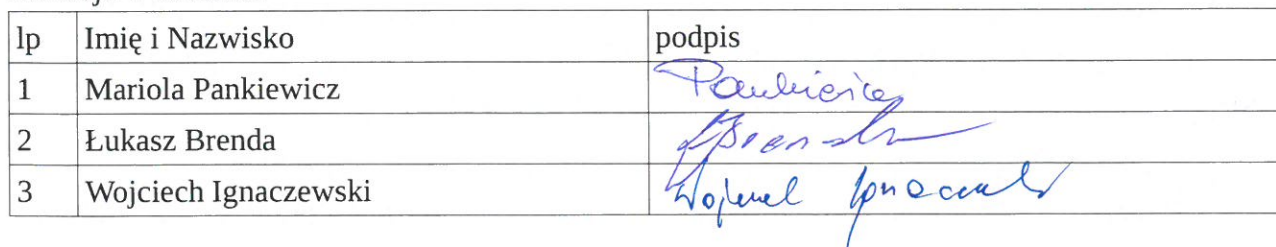 lp Imię i Nazwisko podpis
1 Mariola Pankiewicz Pankiewicz
2 Łukasz Brenda
3 Wojciech Ignaczewski Wojciech